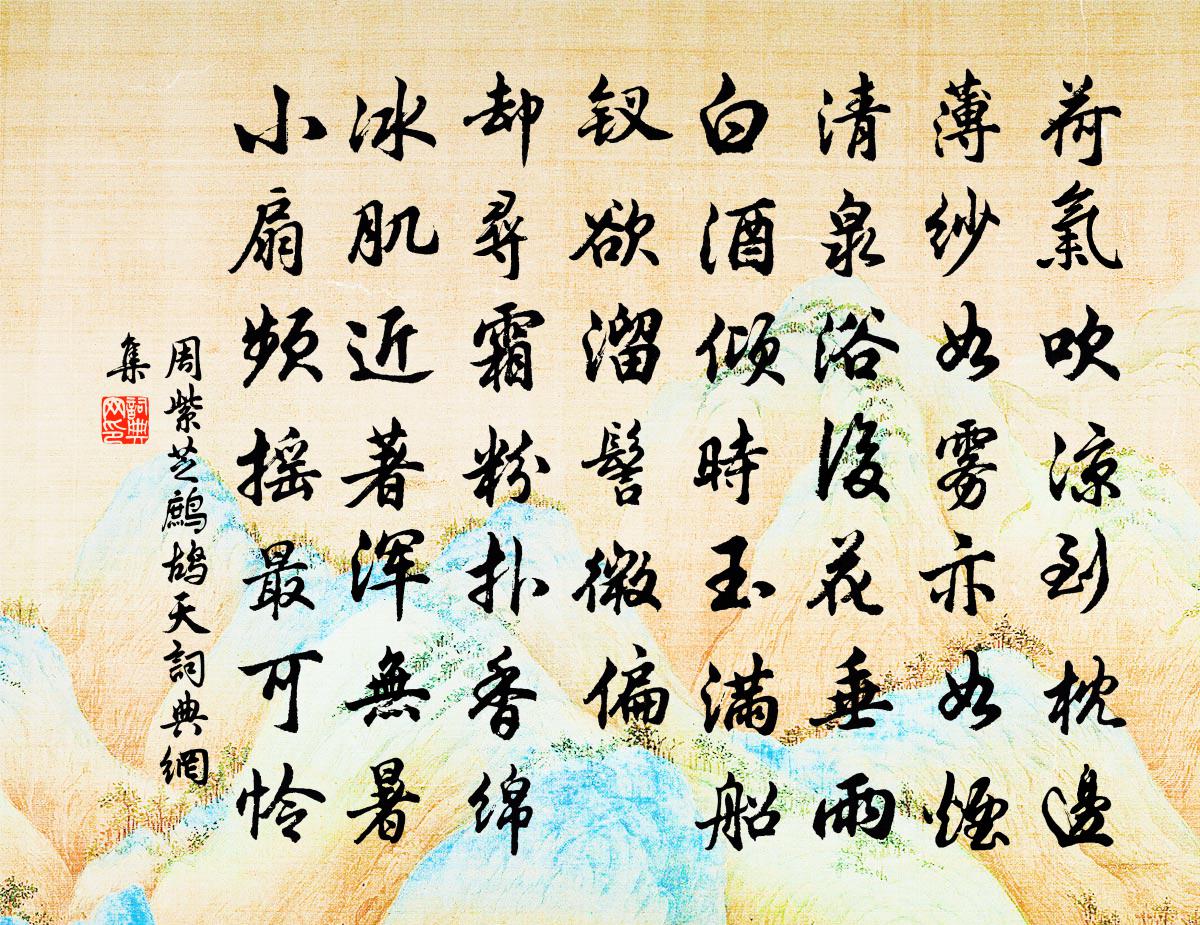 荷氣吹涼到枕邊
薄紗如雾亦如煙
清泉浴後花垂雨
白酒倾時玉满船
钗欲溜髻微偏
却尋霜粉扑香绵
冰肌近著浑無暑
小扇频摇最可怜
周紫芝鷓鸪天詞典網
集
詞典网印